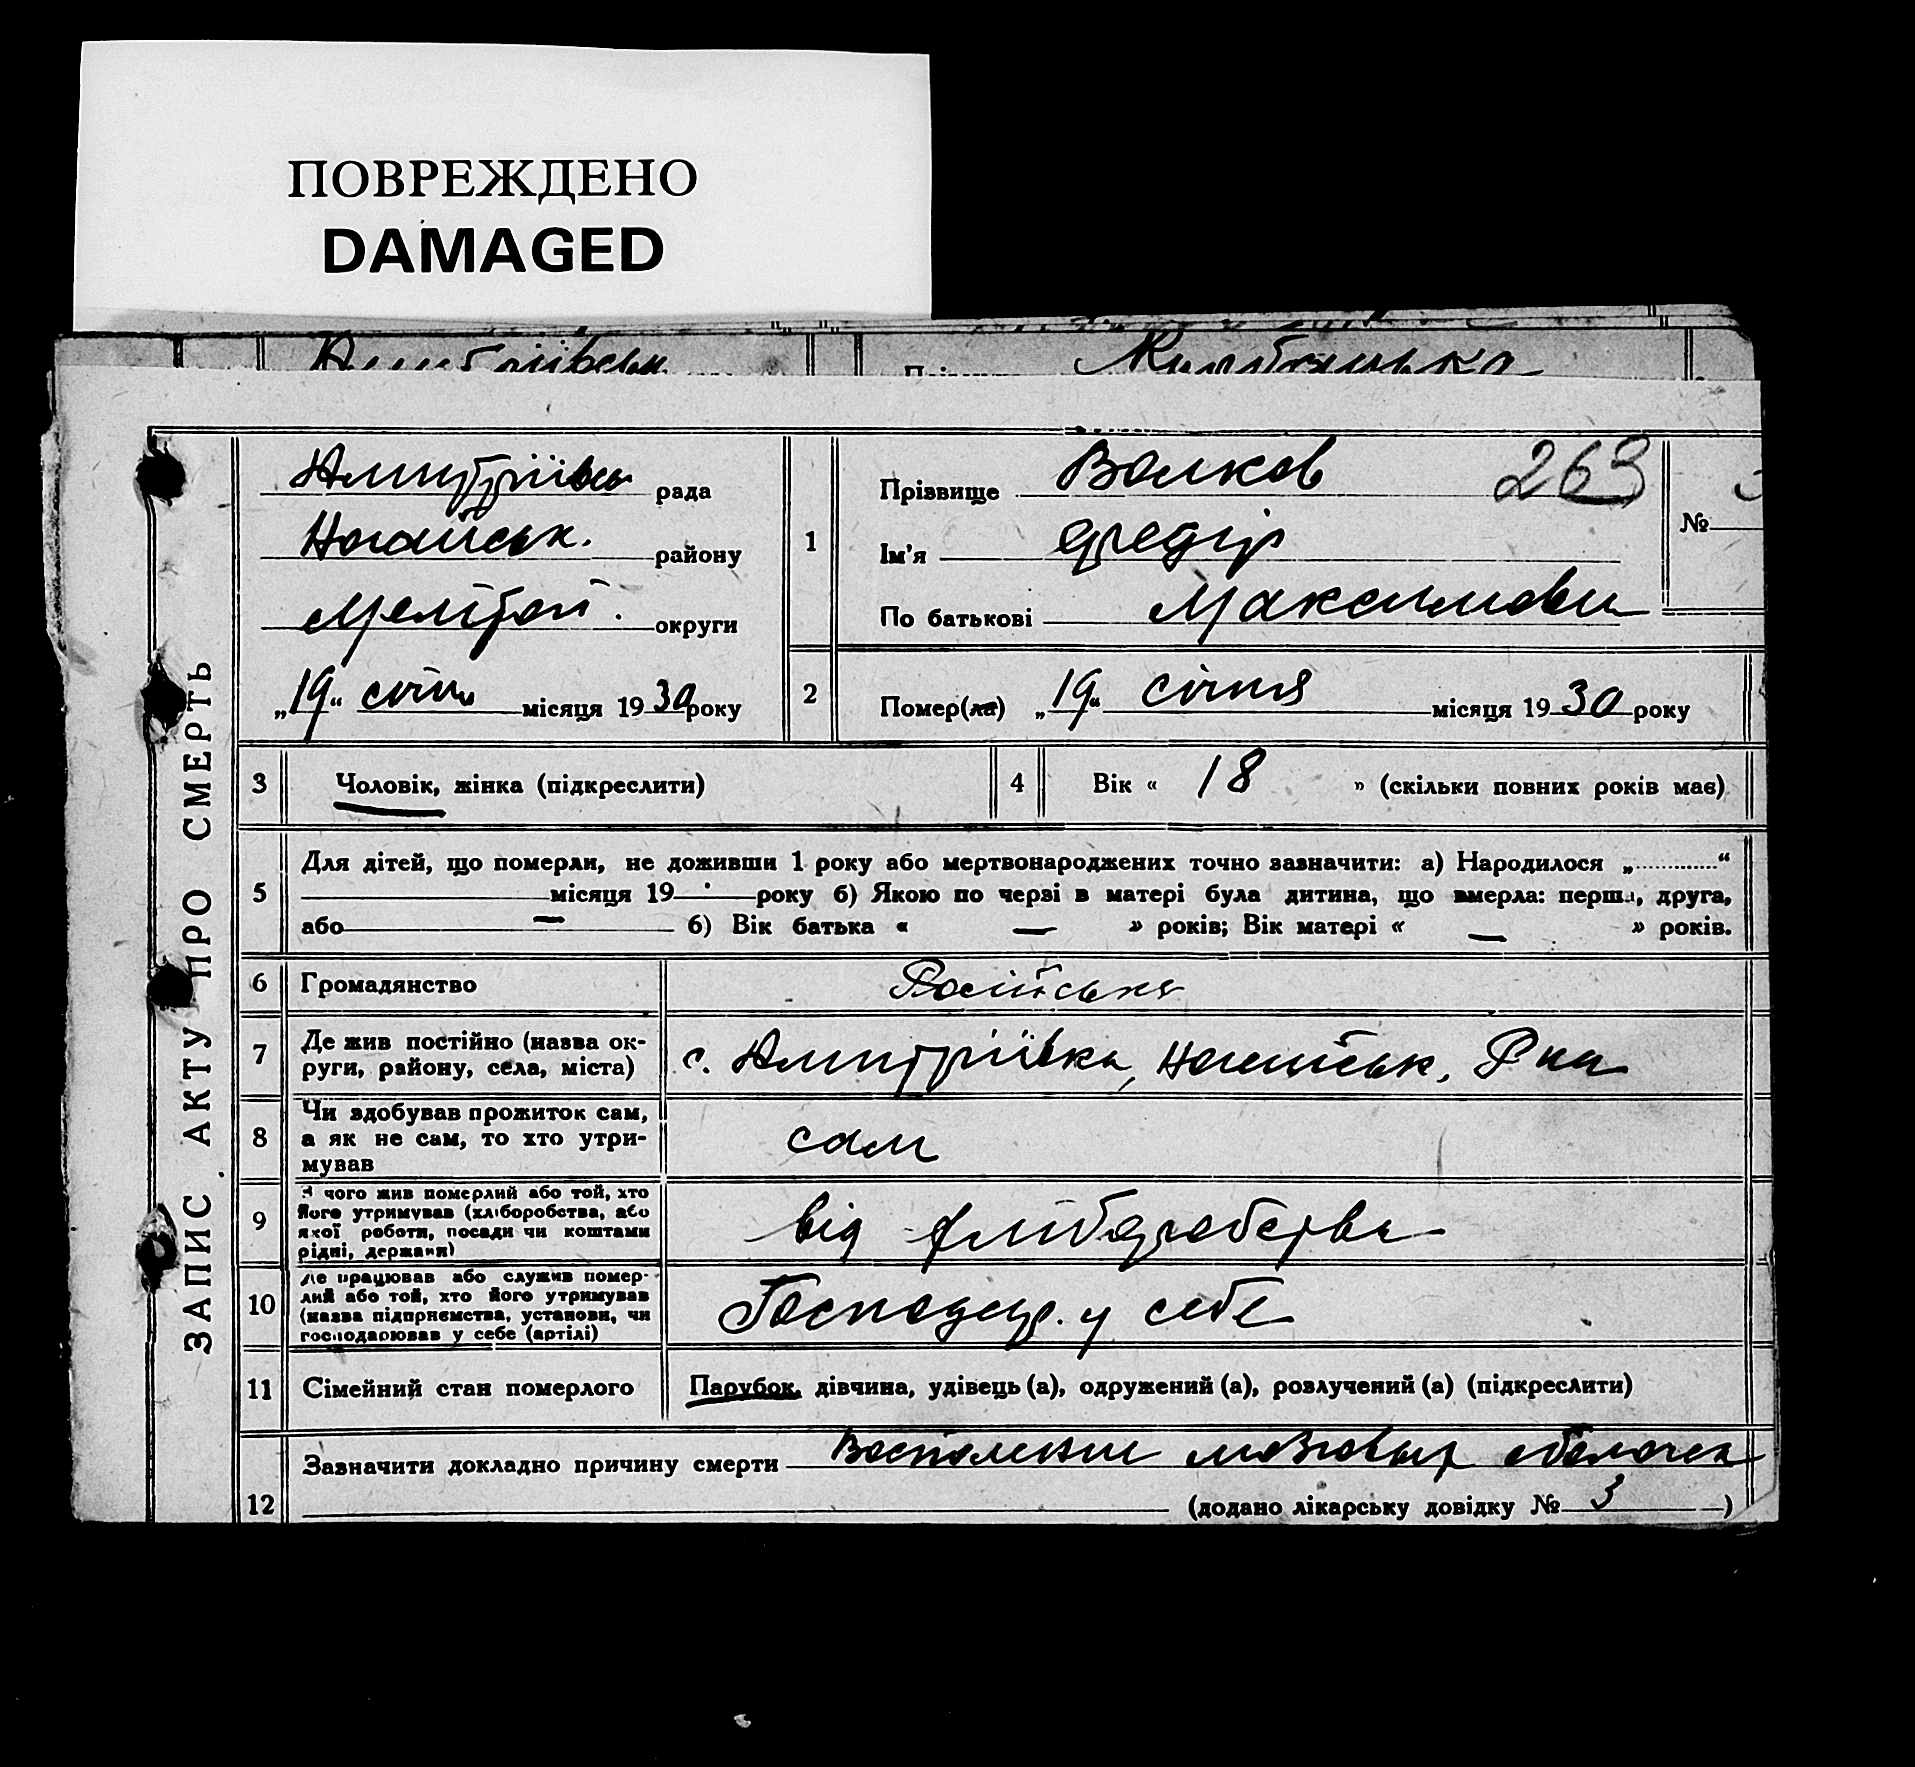 ПОВРЕЖДЕНО
DAMAGED
ЗАПИС АКТУ ПРО СМЕРТЬ
Дмитріївськ рада
Ногайськ. району
Мелітоп. округи
„19“ січня місяця 1930 року
1
Прізвище Волков 263
Ім’я Федір
По батькові Максимович
№
2
Помер(ла) „19“ січня місяця 1930 року
3 Чоловік, жінка (підкреслити)
4 Вік « 18 » (скільки повних років має)
5 Для дітей, що померли, не доживши 1 року або мертвонароджених точно зазначити: а) Народилося „ “
місяця 19 року б) Якою по черзі в матері була дитина, що вмерла: перша, друга,
або — б) Вік батька « — » років; Вік матері « — » років.
6 Громадянство Російське
7 Де жив постійно (назва ок-
руги, району, села, міста) с. Дмитріївка, Ногайськ. Р-на
8 Чи здобував прожиток сам,
а як не сам, то хто утри-
мував сам
9 З чого жив померлий або той, хто
його утримував (хліборобства, або
якої роботи, посади чи коштами
рідні, держави) від хліборобства
10 Де працював або служив помер-
лий або той, хто його утримував
(назва підприємства, установи, чи
господарював у себе (артілі) Господар. у себе
11 Сімейний стан померлого Парубок, дівчина, удівець (а), одружений (а), розлучений (а) (підкреслити)
12 Зазначити докладно причину смерти Воспаление мозговых оболочек
(додано лікарську довідку № 3 )